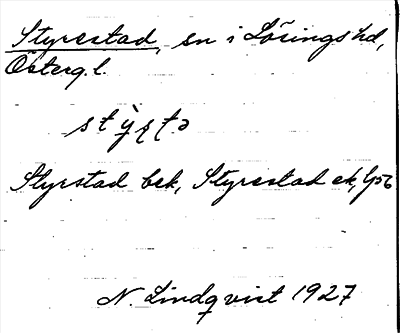 Styrestad, sn i Lösings hd,
Österg. l.
stỳʂʈə
Styrstad bek, Styrestad ek, Gsö
N. Lindqvist 1927